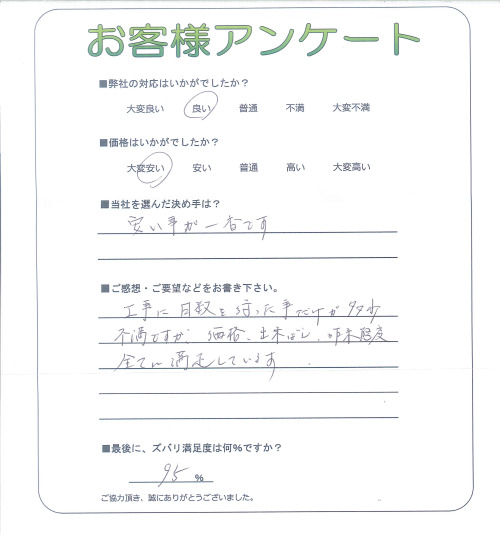 お客様アンケート
■弊社の対応はいかがでしたか？
大変良い 良い 普通 不満 大変不満
■価格はいかがでしたか？
大変安い 安い 普通 高い 大変高い
■当社を選んだ決め手は？
安い事が一番です
■ご感想・ご要望などをお書き下さい。
工事に日数を行った事だけが多少
不満ですが、価格、出来ばえ、態度
全てに満足しています
■最後に、ズバリ満足度は何%ですか？
95 %
ご協力頂き、誠にありがとうございました。